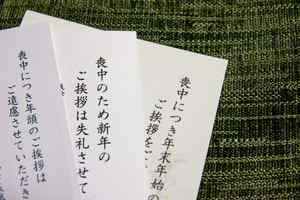 喪中につき年頭のご挨拶は
ご遠慮させていただき
喪中のため新年の
ご挨拶は失礼させて
喪中につき年末年始の
ご挨拶を